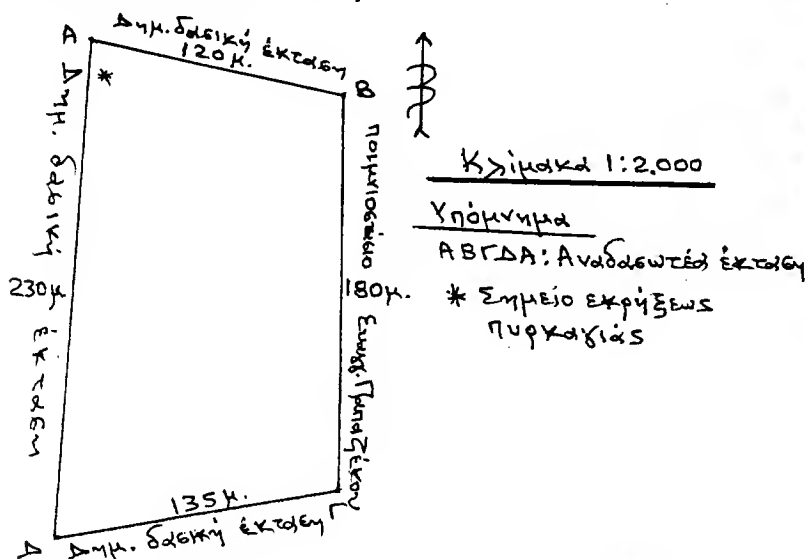 Α
Δημ. δασική έκταση
120μ.
Β
Δημ. δασική έκταση
230μ.
Ποιμνιοστάσιο
180μ.
Παπαζέκου
135μ.
Δημ. δασική έκταση
Γ
Δ
Κλίμακα 1:2.000
Υπόμνημα
ΑΒΓΔΑ: Αναδασωτέα έκταση
* Σημείο εκρήξεως
πυρκαγιάς